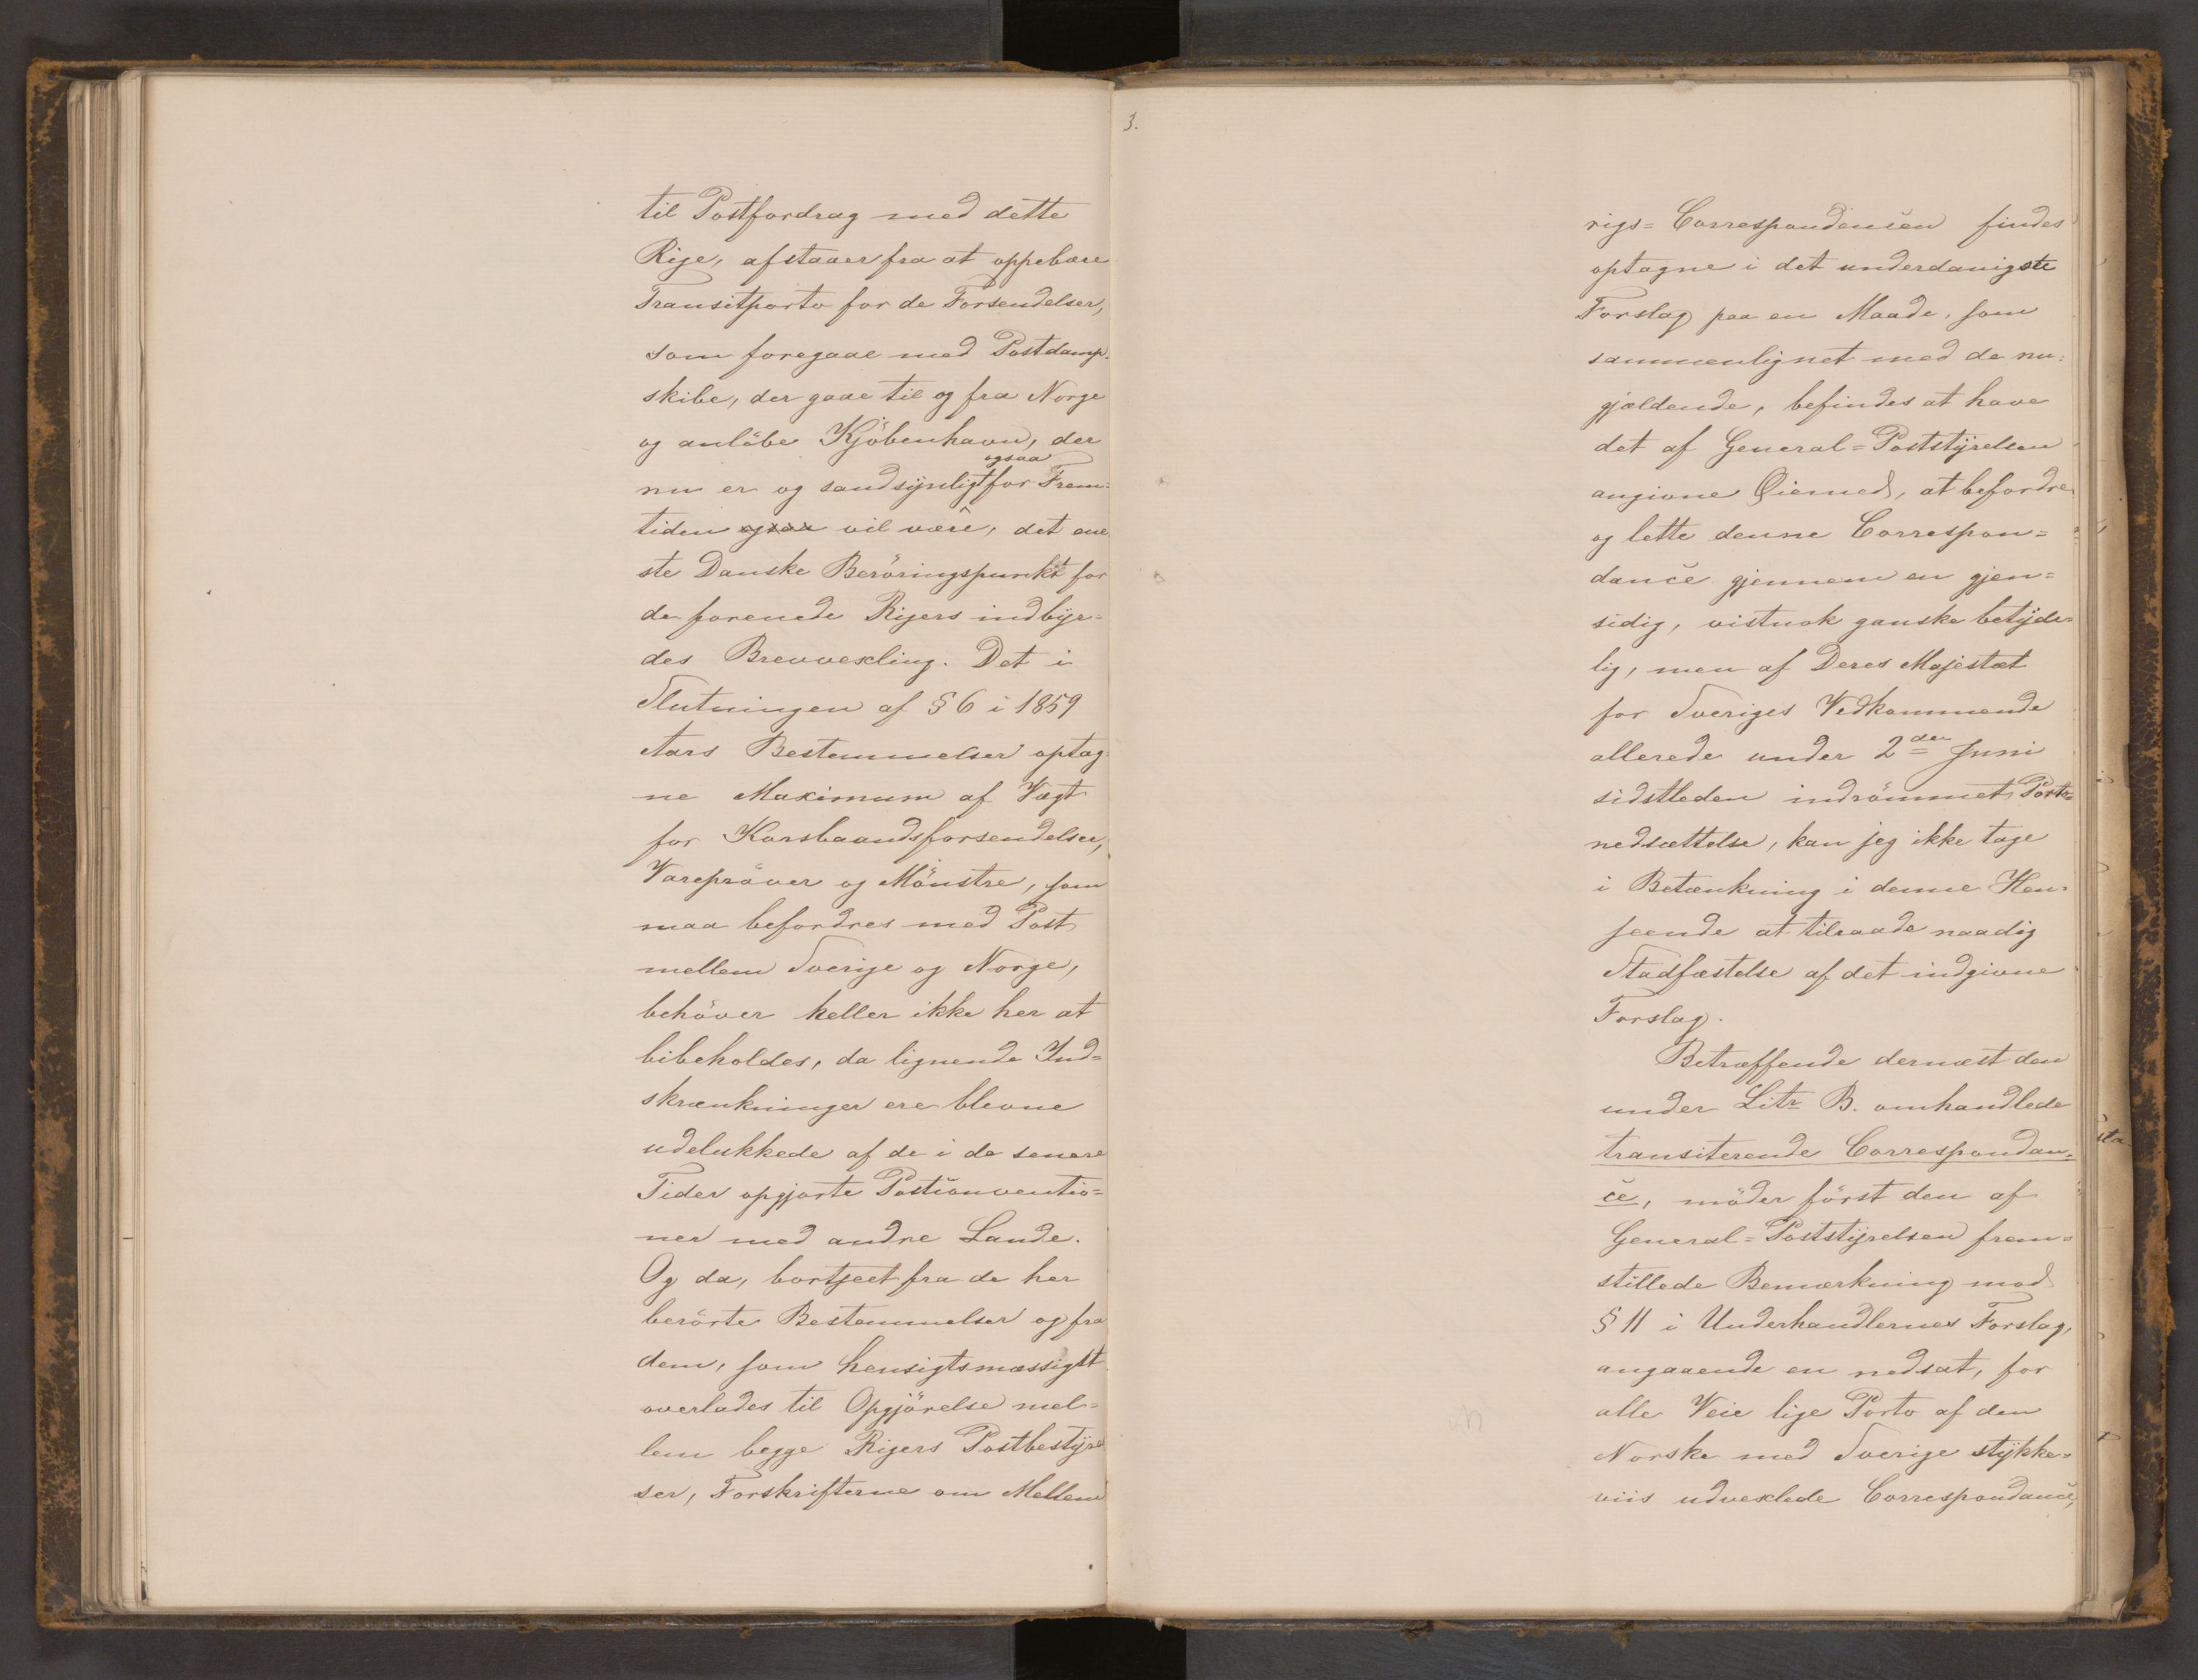 til Postfordrag med dette
Rige, afstaaer fra at oppebære
Transitporto for de Forsendelser,
som foregaae med Postdamp-
skibe, der gaae til og fra Norge
og anlöbe Kjöbenhavn, der
nu er og sandsynligt ogsaa for Frem-
tiden ogsaa vil være, det ene
ste Danske Beröringspunkt for
de forenede Rigers indbyr-
des Brevvexling. Det i
Slutningen af § 6 i 1859
Aars Bestemmelser optag-
ne Maximum af Vægt
for Korsbaandsforsendelser,
Varepröver og Mönstre, som
maa befordres med Post
mellem Sverige og Norge,
behöver heller ikke her at
bibeholdes, da lignende Ind-
skrænkninger ere blevne
udelukkede af de i de senere
Tider opgjorte Postconventio-
ner med andre Lande.
Og da, bortseet fra de her
berörte Bestemmelser og fra
dem, som hensigtsmæssigst
overlades til Opgjörelse mel-
lem begge Rigers Postbestyrel
ser, Forskrifterne om Mellem
3.
rigs-Correspondencen findes
optagne i det underdanigste
Forslag paa en Maade, som
sammenlignet med de nu-
gjældende, befindes at have
det af General-Poststyrelsen
angivne Øiemed, at befordre
og lette denne Correspon-
dance gjennem en gjen-
sidig, vistnok ganske betyde-
lig, men af Deres Majestæt
for Sveriges Vedkommende
allerede under 2den Juni
sidstleden indrömmet Porto-
nedsættelse, kan jeg ikke tage
i Betænkning i denne Hen-
seende at tilraade naadig
Stadfæstelse af det indgivne
Forslag.
Betræffende dernæst den
under Litr B. omhandlede
transiterende Correspondan-
ce, möder först den af
General-Poststyrelsen frem-
stillede Bemærkning mod
§ 11 i Underhandlernes Forslag,
angaaende en nedsat, for
alle Veie lige Porto af den
Norske med Sverige stykke-
viis udvexlede Correspondance,